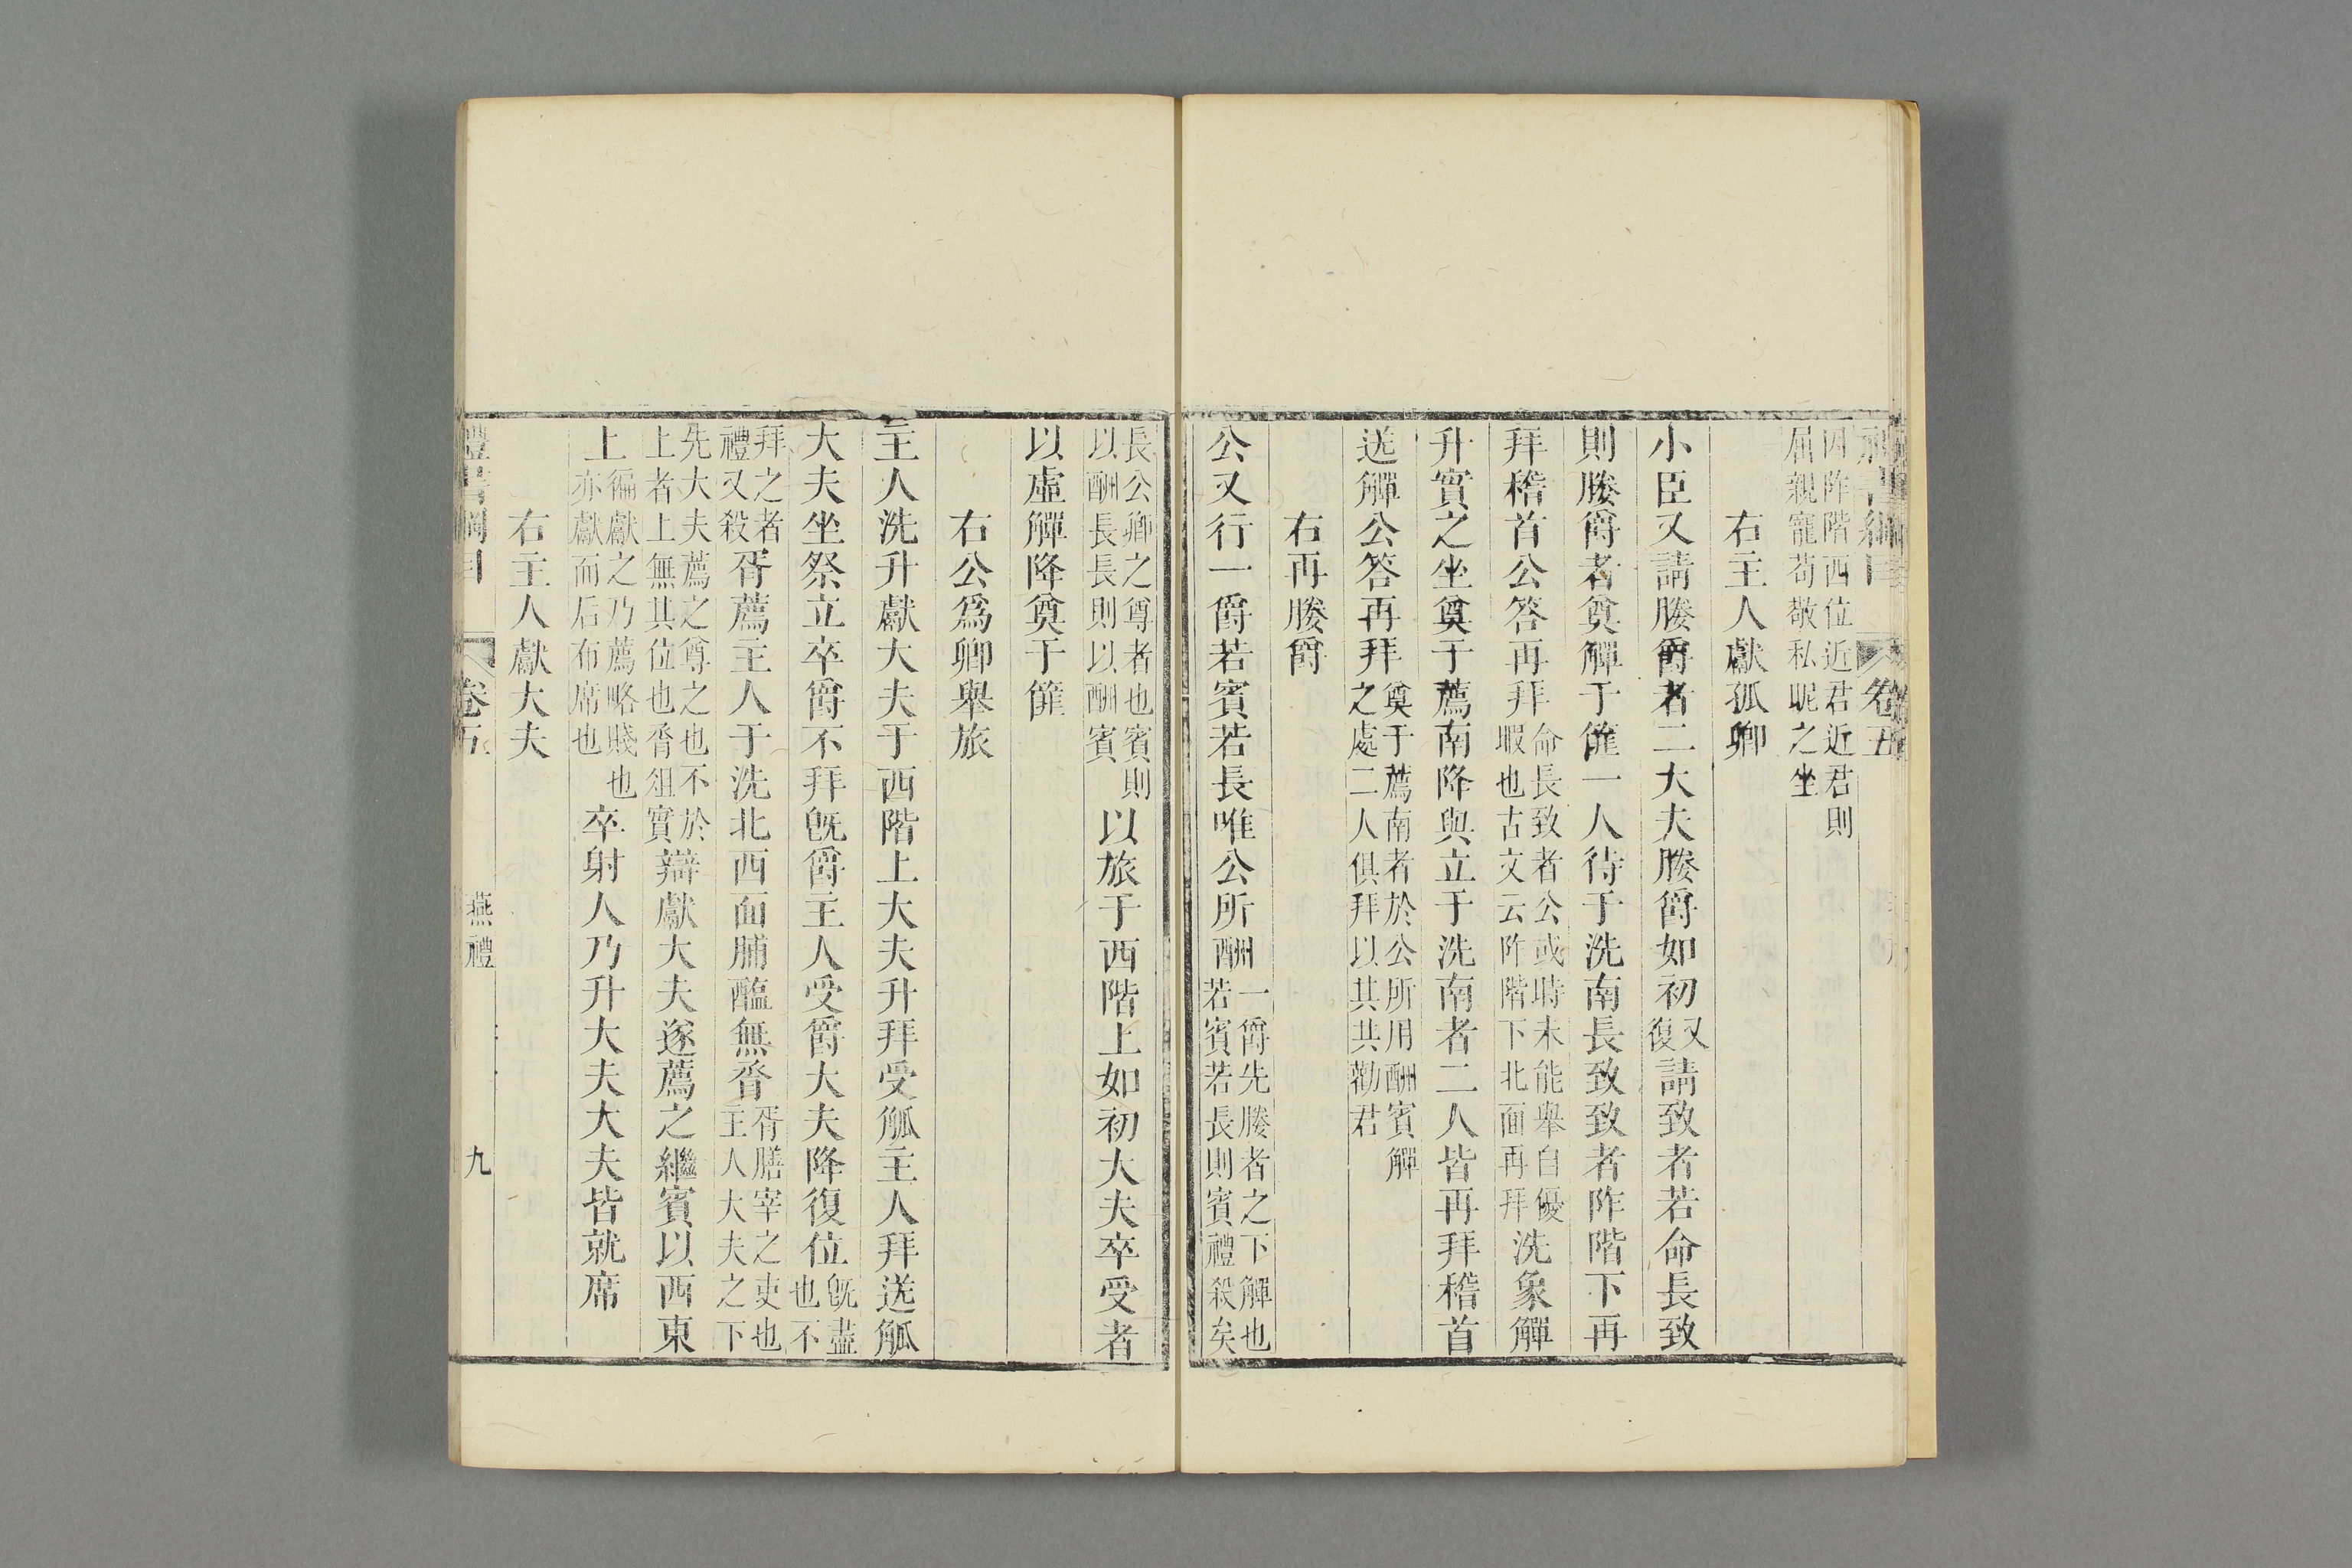 禮書綱目 卷五
因阼階西位近君近君則
屈親寵苟敬私昵之坐
右主人獻孤卿
小臣又請媵爵者二大夫媵爵如初又復請致者若命長致
則媵爵者奠觶于篚一人待于洗南長致致者阼階下再
拜稽首公答再拜命長致者公或時未能舉自優暇也古文云阼階下北面再拜洗象觶
升實之坐奠于薦南降與立于洗南者二人皆再拜稽首
送觶公答再拜奠于薦南者於公所用酬賓觶之處二人俱拜以其共勸君
右再媵爵
公又行一爵若賓若長唯公所酬一爵先媵者之下觶也若賓若長則賓禮殺矣
長公卿之尊者也賓則以酬長長則以酬賓以旅于西階上如初大夫卒受者
以虛觶降奠于篚
右公爲卿舉旅
主人洗升獻大夫于西階上大夫升拜受觚主人拜送觚
大夫坐祭立卒爵不拜旣爵主人受爵大夫降復位旣盡也不
拜之者禮又殺胥薦主人于洗北西面脯醢無脀胥膳宰之吏也主人大夫之下
先大夫薦之尊之也不於上者上無其位也脀俎實辯獻大夫遂薦之繼賓以西東
上徧獻之乃薦略賤也亦獻而后布席也卒射人乃升大夫大夫皆就席
右主人獻大夫
禮書綱目 卷五 燕禮 九